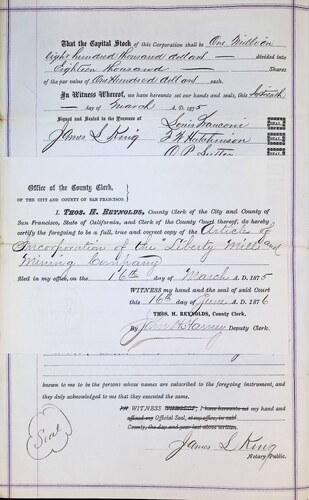 That the Capital Stock of this Corporation shall be One Million
eight hundred thousand dollars — divided into
Eighteen thousand — Shares
of the par value of One Hundred dollars each.
In Witness Whereof, we have hereunto set our hands and seals, this Sixteenth
— day of March A. D. 1875
Signed and Sealed in the Presence of
James L King
Louis Franconi SEAL
F. H. Hutchinson SEAL
O. P. Sutton SEAL
Office of the County Clerk,
OF THE CITY AND COUNTY OF SAN FRANCISCO.
I, THOS. H. REYNOLDS, County Clerk of the City and County of
San Francisco, State of California, and Clerk of the County Court thereof, do hereby
certify the foregoing to be a full, true and correct copy of the Articles of
Incorporation of the "Liberty Mill and
Mining Company"
filed in my office, on the 16th day of March A. D. 1875
WITNESS my hand and the seal of said Court
this 16th day of June A. D. 1876
THOS. H. REYNOLDS, County Clerk.
By Deputy Clerk.
known to me to be the persons whose names are subscribed to the foregoing instrument, and
they duly acknowledged to me that they executed the same.
WITNESS my hand and
Official Seal,
County, the day and year last above written.
Seal
James L King
Notary Public.